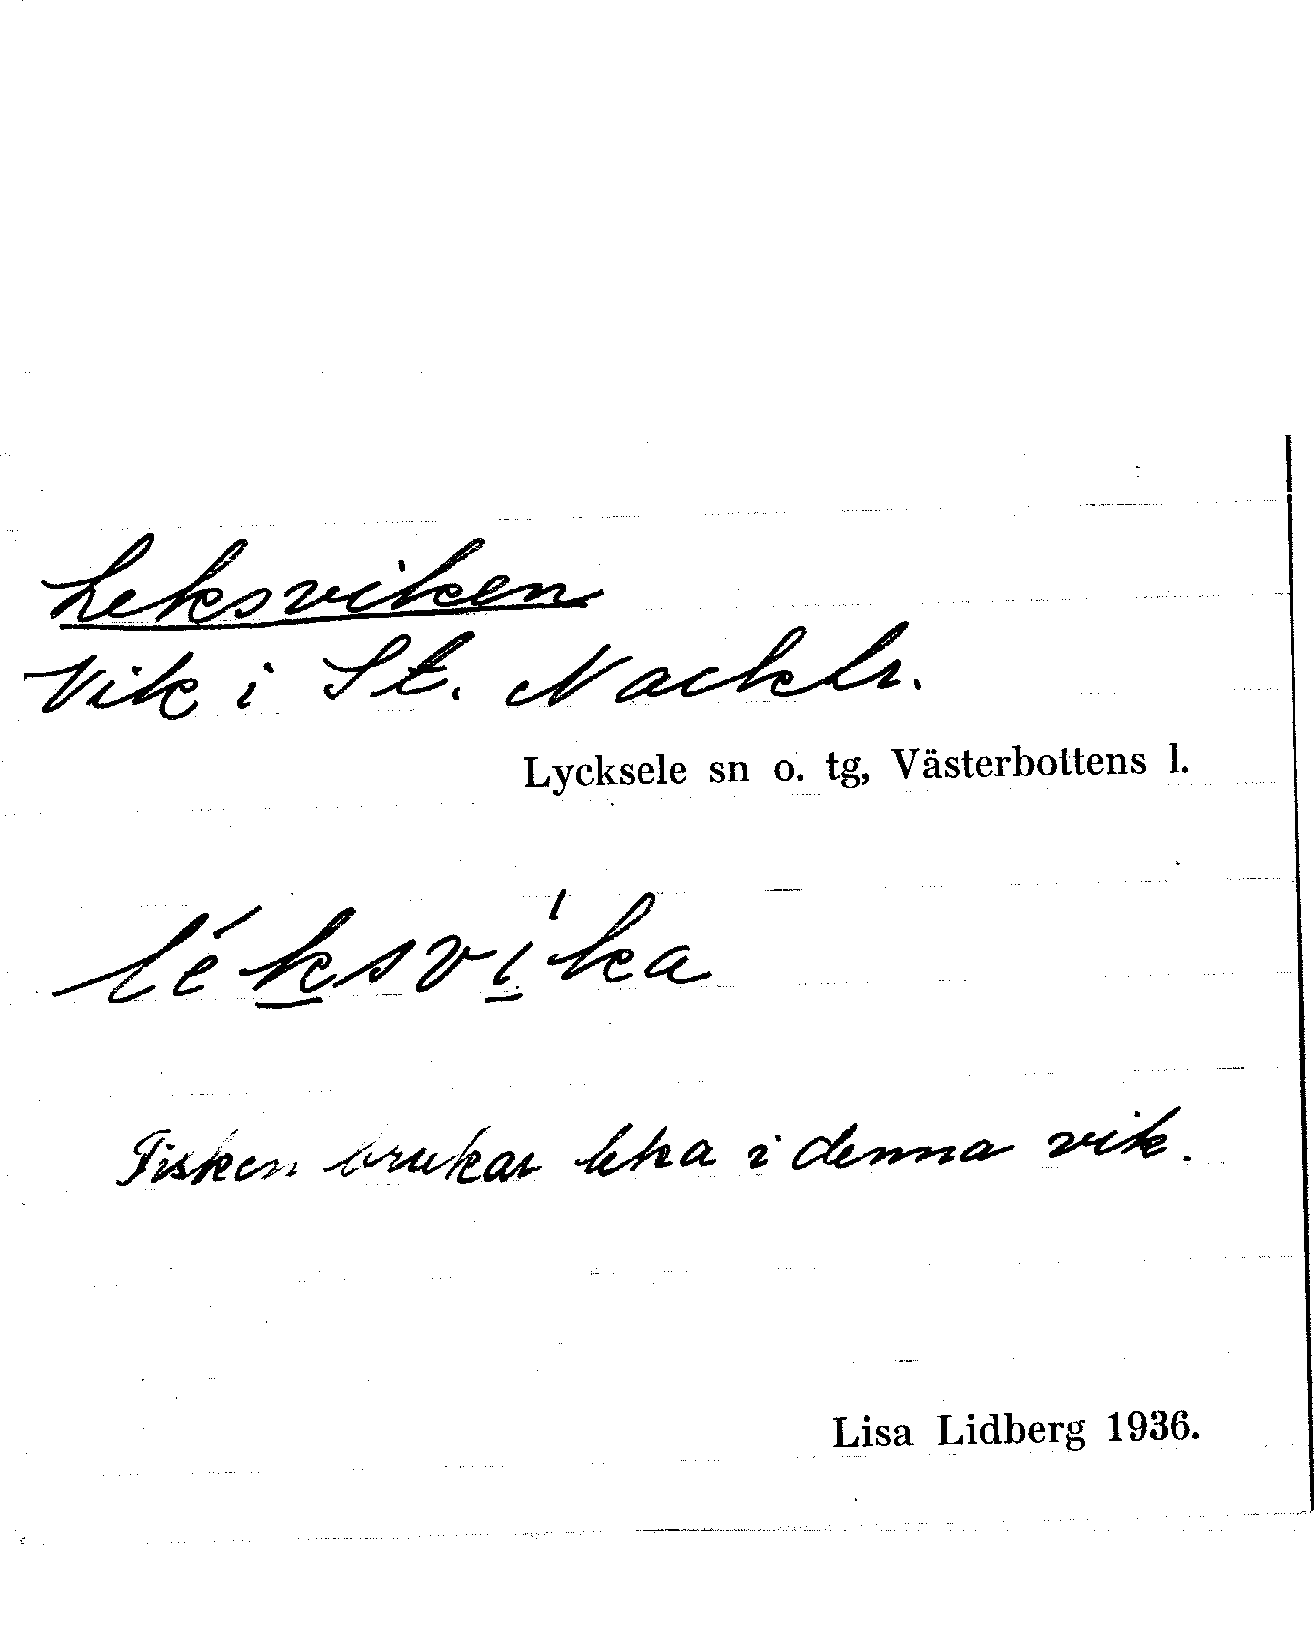 Leksviken
Vik i St. Nacktr.
Lycksele sn o. tg, Västerbottens l.
léksvi̍ka
Fisken brukar leka i denna vik.
Lisa Lidberg 1936.